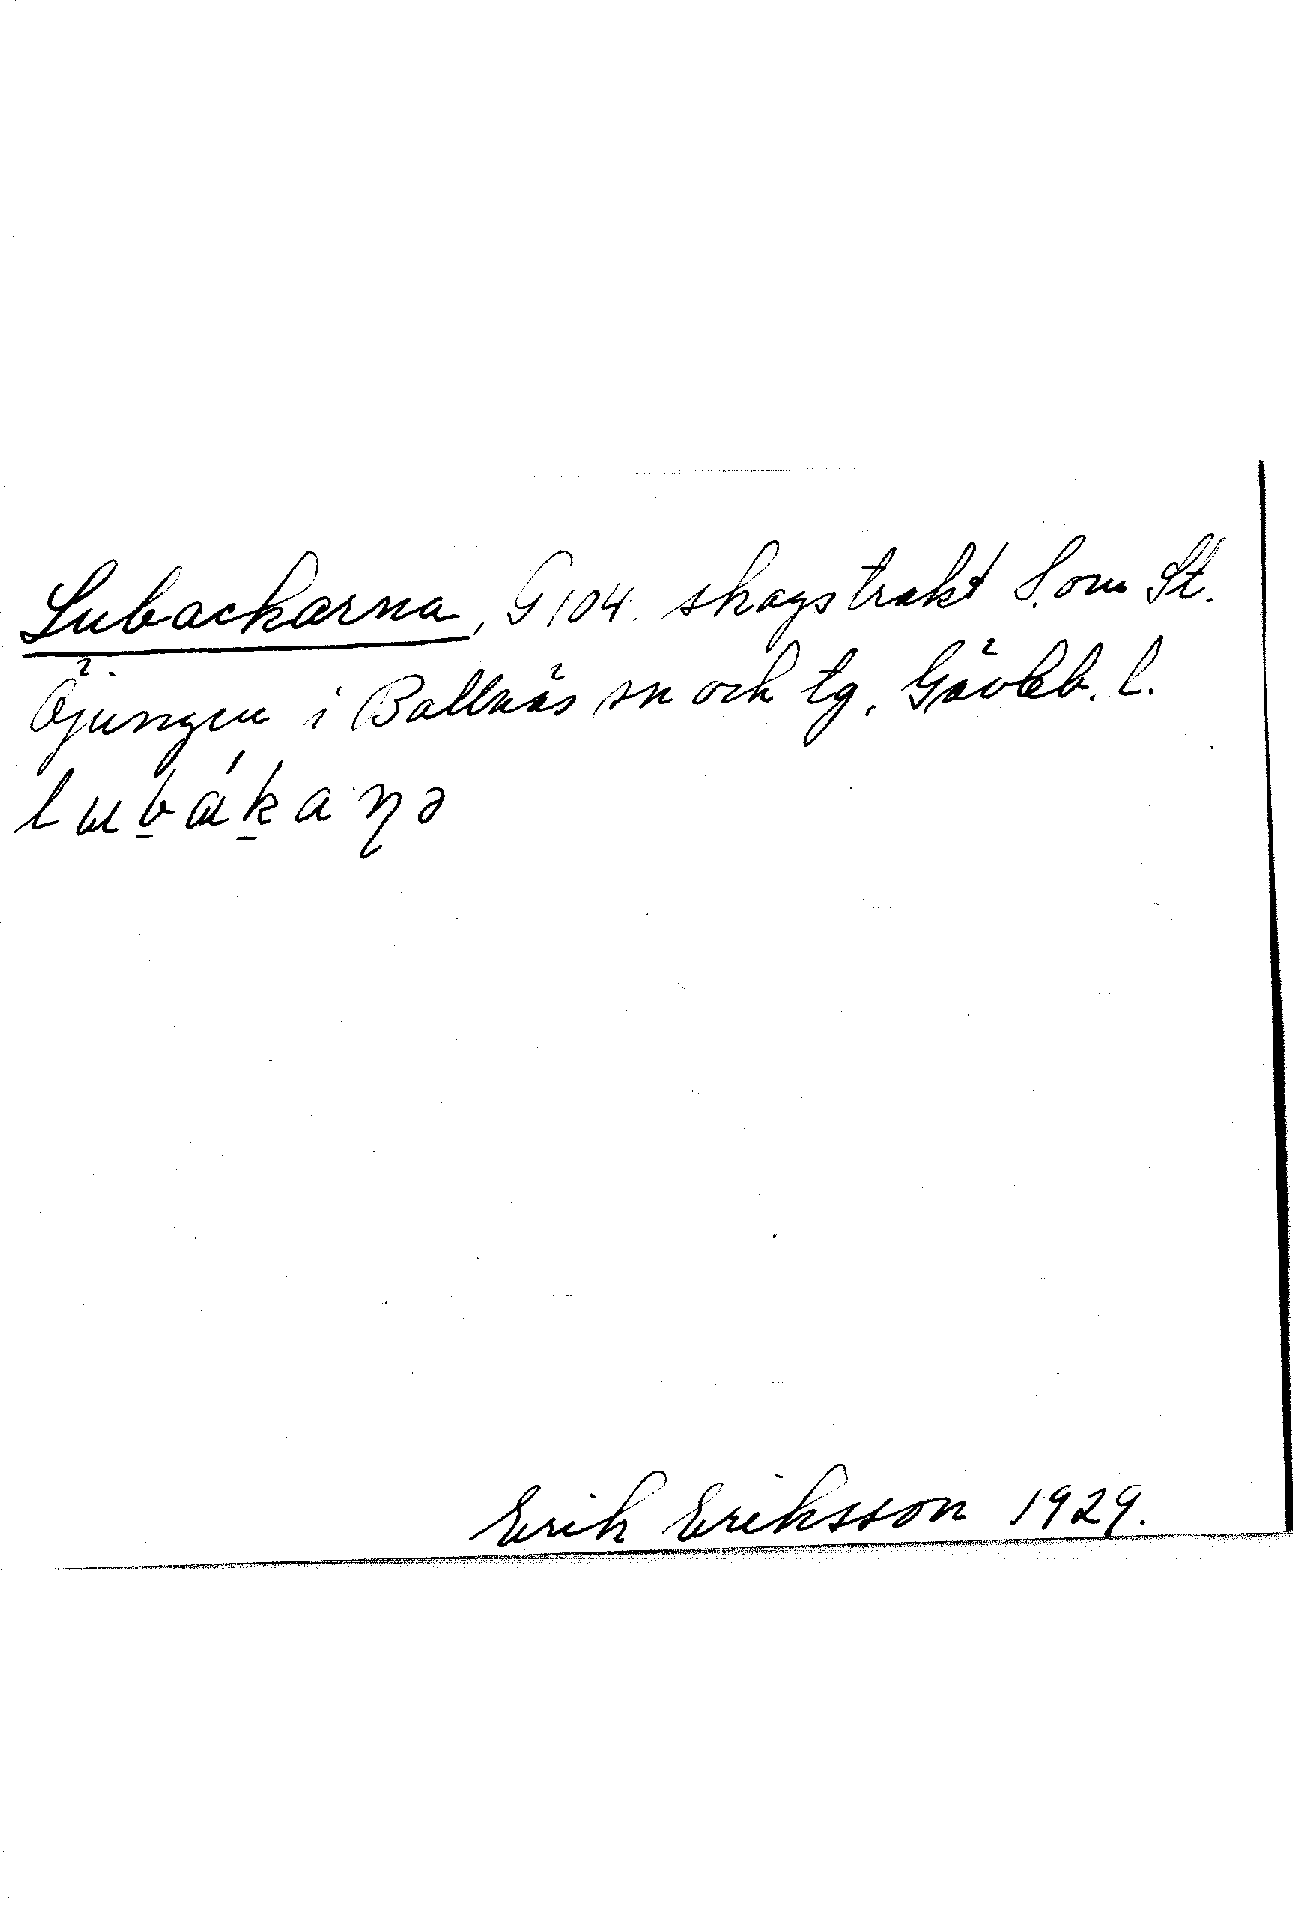 Lubackarna, G 104. skogstrakt S. om St.
Öjungen i Bollnäs sn och tg, Gävleb. l.
lubákaɳə
Erik Eriksson 1929.